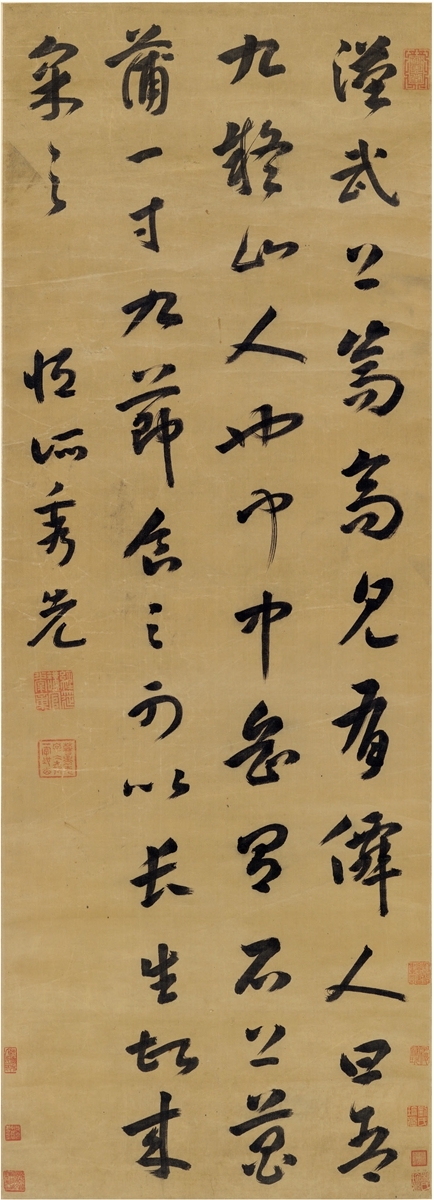 漢武上嵩高見有僊人曰吾
九疑山人也聞中岳有石上菖
蒲一寸九節食之可以長生故來
采之
恒所秀先